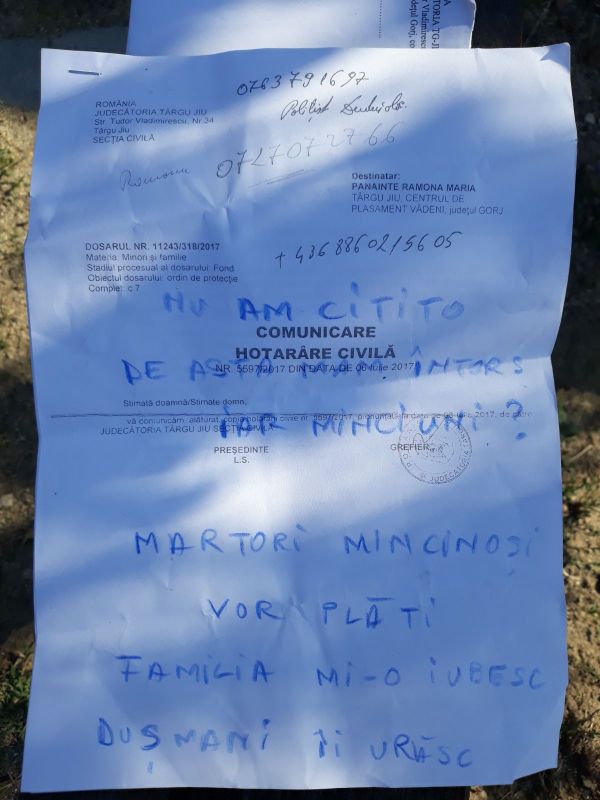 0763791697
Polițist
ROMÂNIA
JUDECĂTORIA TÂRGU JIU
Str. Tudor Vladimirescu, Nr.34
Târgu Jiu
SECȚIA CIVILĂ
Ramona 0727072766
Destinatar:
PANAINTE RAMONA MARIA
TÂRGU JIU, CENTRUL DE
PLASAMENT VĂDENI, județul GORJ
DOSARUL NR. 11243/318/2017
Materia: Minori și familie
Stadiul procesual al dosarului: Fond
Obiectul dosarului: ordin de protecție
Complet: c 7
+4368860215605
NU AM CITITO
COMUNICARE
HOTARÂRE CIVILĂ
NR. 5597/2017 DIN DATA DE 06 Iulie 2017
DE ASTA ÎNTORS
Stimată doamnă/Stimate domn,
vă comunicăm, alăturat, copia hotărârii civile nr. 5597/2017, pronunțată la data de 06 Iulie 2017, de către
JUDECĂTORIA TÂRGU JIU SECȚIA CIVILĂ
IAR MINCIUNI?
PREȘEDINTE
L.S.
GREFIER,
JUDECĂTORIA
MARTORI MINCINOȘI
VOR PLĂTI
FAMILIA MI-O IUBESC
DUȘMANI ÎI URĂSC